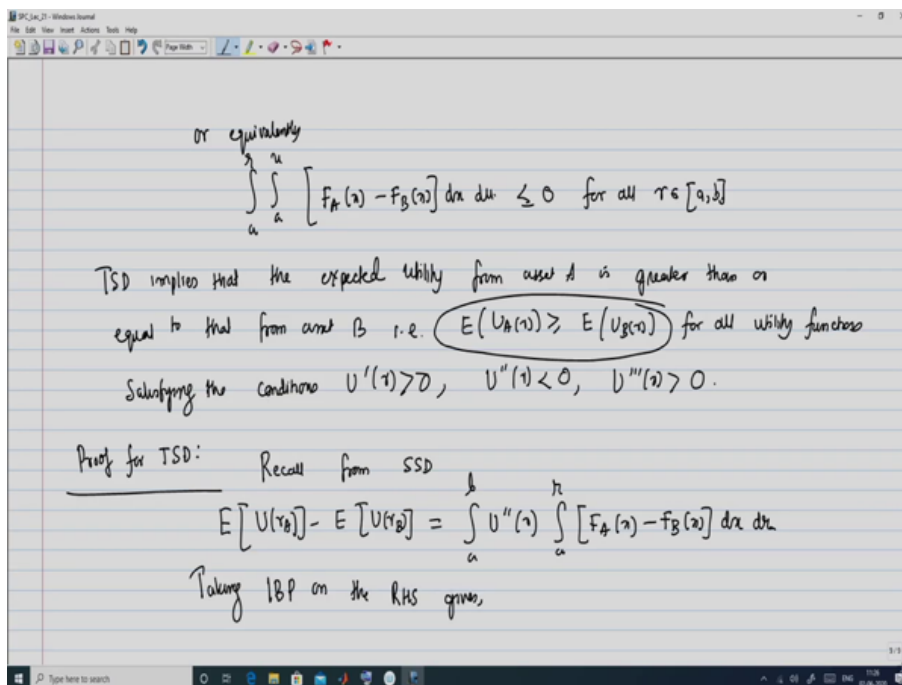 SPC_Lec_21 - Windows Journal
File Edit View Insert Actions Tools Help
Page Width
or equivalently
∫_a^r ∫_a^u [F_A(x) - F_B(x)] dx du ≤ 0 for all r ∈ [a,b]
TSD implies that the expected utility from asset A is greater than or
equal to that from asset B i.e. E(U_A(r)) ≥ E(U_B(r)) for all utility functions
Satisfying the conditions U'(r) > 0, U''(r) < 0, U'''(r) > 0.
Proof for TSD: Recall from SSD
E[U(r_A)] - E[U(r_B)] = ∫_a^b U''(r) ∫_a^r [F_A(x) - F_B(x)] dx dr
Taking IBP on the RHS gives,
9/9
Type here to search
ENG
11:26